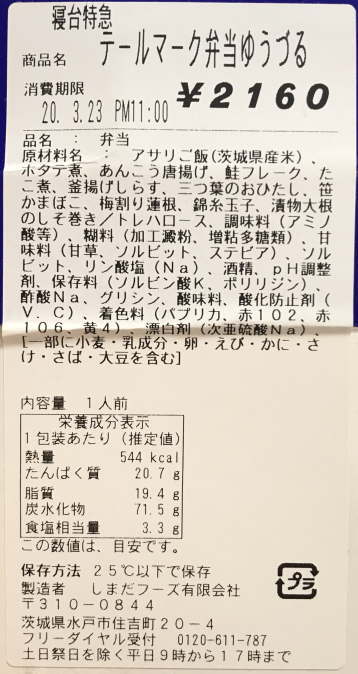 寝台特急
商品名 テールマーク弁当ゆうづる
消費期限
20. 3.23 PM11:00 ¥2160
品名 : 弁当
原材料名 : アサリご飯(茨城県産米)、
ホタテ煮、あんこう唐揚げ、鮭フレーク、た
こ煮、釜揚げしらす、三つ葉のおひたし、笹
かまぼこ、梅割り蓮根、錦糸玉子、漬物大根
のしそ巻き/トレハロース、調味料(アミノ
酸等)、糊料(加工澱粉、増粘多糖類)、甘
味料(甘草、ソルビット、ステビア)、ソル
ビット、リン酸塩(Na)、酒精、pH調整
剤、保存料(ソルビン酸K、ポリリジン)、
酢酸Na、グリシン、酸味料、酸化防止剤(
V.C)、着色料(パプリカ、赤102、赤
106、黄4)、漂白剤(次亜硫酸Na)、
[一部に小麦・乳成分・卵・えび・かに・さ
け・さば・大豆を含む]
内容量 1人前
栄養成分表示
1包装あたり(推定値)
熱量 544 kcal
たんぱく質 20.7 g
脂質 19.4 g
炭水化物 71.5 g
食塩相当量 3.3 g
この数値は、目安です。
保存方法 25℃以下で保存
製造者 しまだフーズ有限会社
〒310-0844
茨城県水戸市住吉町20-4
フリーダイヤル受付 0120-611-787
土日祭日を除く平日9時から17時まで
プラ